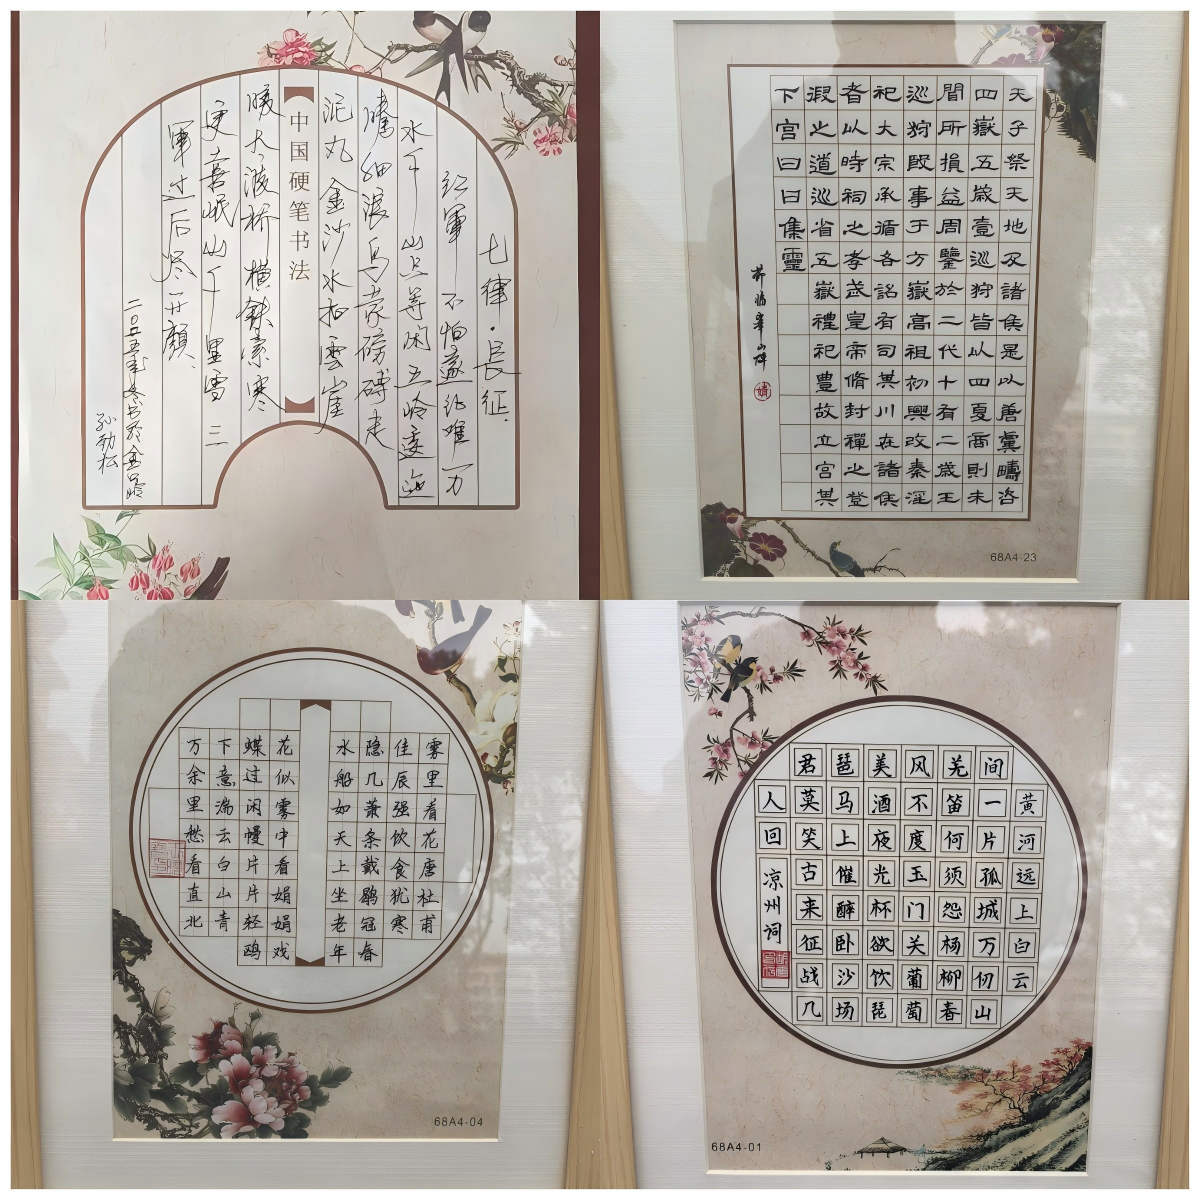 七律·長征
红軍不怕遠征难万
水千山只等闲五岭逶迤
腾细浪乌蒙磅礴走
泥丸金沙水拍雲崖
中国硬笔书法
暖大渡桥横鉄索寒
更喜岷山千里雪三
軍过后尽开颜
二〇二五年冬书于金陵
孙劲松
天子祭天地及諸侯是以唐虞疇咨
四嶽五歲壹巡狩皆以四夏商則未
聞所損益周鑒於二代十有二歲王
巡狩殷事于方嶽高祖初興改秦淫
祀大宗承循各詔有司其川在諸侯
者以時祠之孝武皇帝脩封禪之登
遐之道巡省五嶽禮祀豊故立宮其
下宮曰曰集靈
節临華山碑
68A4-23
雾里看花唐杜甫
佳辰强饮食犹寒
隐几萧条戴鹖冠春
水船如天上坐老年
花似雾中看娟娟戏
蝶过闲幔片片轻鸥
下急湍云白山青
万余里愁看直北
68A4-04
黄河远上白云
间一片孤城万仞山
羌笛何须怨杨柳春
风不度玉门关葡萄
美酒夜光杯欲饮琵
琶马上催醉卧沙场
君莫笑古来征战几
人回
凉州词
68A4-01